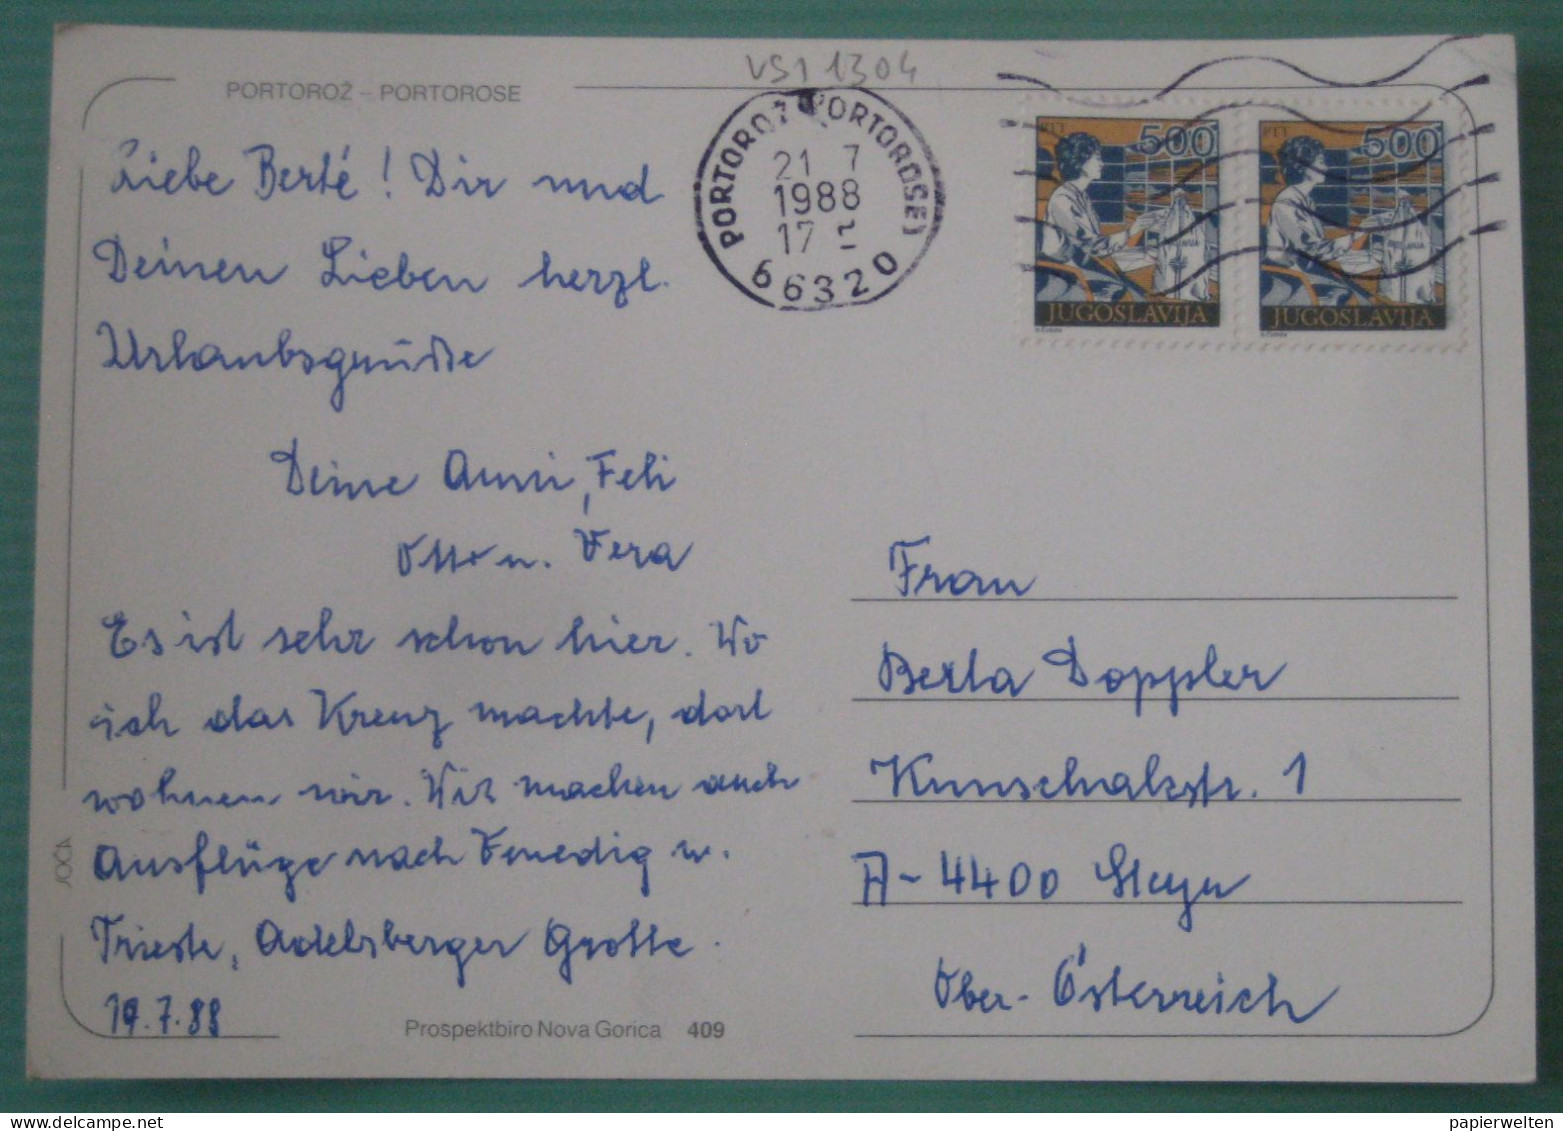 VS1 1304
PORTOROŽ – PORTOROSE
PORTOROŽ (PORTOROSE)
21 7
1988
17
66320
PTT 500
JUGOSLAVIJA
PTT 500
JUGOSLAVIJA
Liebe Berté! Dir und
Deinen Lieben herzl.
Urlaubsgrüße
Deine Anni, Feli
Otto u. Vera
Es ist sehr schon hier. Wo
ich das Kreuz machte, dort
wohnen wir. Wir machen auch
Ausflüge nach Venedig u.
Trieste, Adelsberger Grotte.
19.7.88
SOČA
Prospektbiro Nova Gorica 409
Frau
Berta Doppler
Kunschakstr. 1
A-4400 Steyr
Ober-Österreich
papierwelten